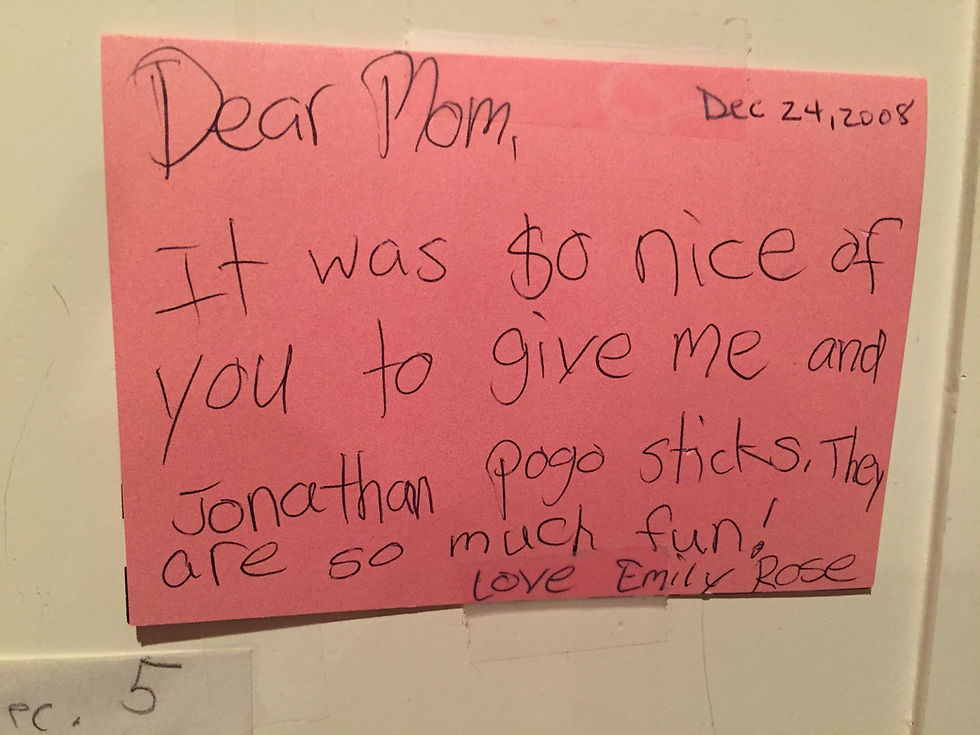 Dear Mom,
Dec 24, 2008
It was so nice of
you to give me and
Jonathan pogo sticks. They
are so much fun!
Love Emily Rose
ec. 5